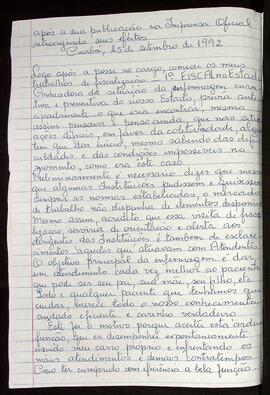 após a sua publicação na Imprensa Oficial
retroagindo seus efeitos
Cuiabá, 25 de setembro de 1992
Logo após a posse no cargo, comecei os meus
trabalhos de fiscalização 1ª FISCAL no Estado
Conhecedora da situação da enfermagem curativa
e preventiva do nosso Estado, previa ante-
cipadamente o que era encontrar, mesmo
assim pensava e penso ainda, que nas situ-
ações difíceis, em favor da coletividade alguém
tem que dar início, mesmo sabendo das difi-
culdades e das condições impossíveis no
momento, como era este caso.
Preliminarmente é necessário dizer que mesmo
que algumas Instituições pudessem e quizessem
cumprir as normas estabelecidas, o mercado
de trabalho não dispunha de elementos disponíveis
Mesmo assim, acredito que essa visita de fisca-
lização, serviria de orientação e alerta aos
dirigentes das Instituições e também de esclare-
cimentos àqueles que atuavam com Atendentes.
O objetivo principal da enfermagem é dar
um atendimento cada vez melhor ao paciente
que pode ser seu pai, sua mãe, seu filho, etc.
Todo e qualquer paciente que tenhamos que
cuidar, merece todo o nosso conhecimento,
cuidado eficiente e carinho verdadeiro
Este foi o motivo porque aceitei esta árdua
função, que eu desempenhei espontaneamente
usando meu carro próprio e enfrentando os
máus atendimentos e demais contratempos.
Creio ter cumprido com eficiência a bela função